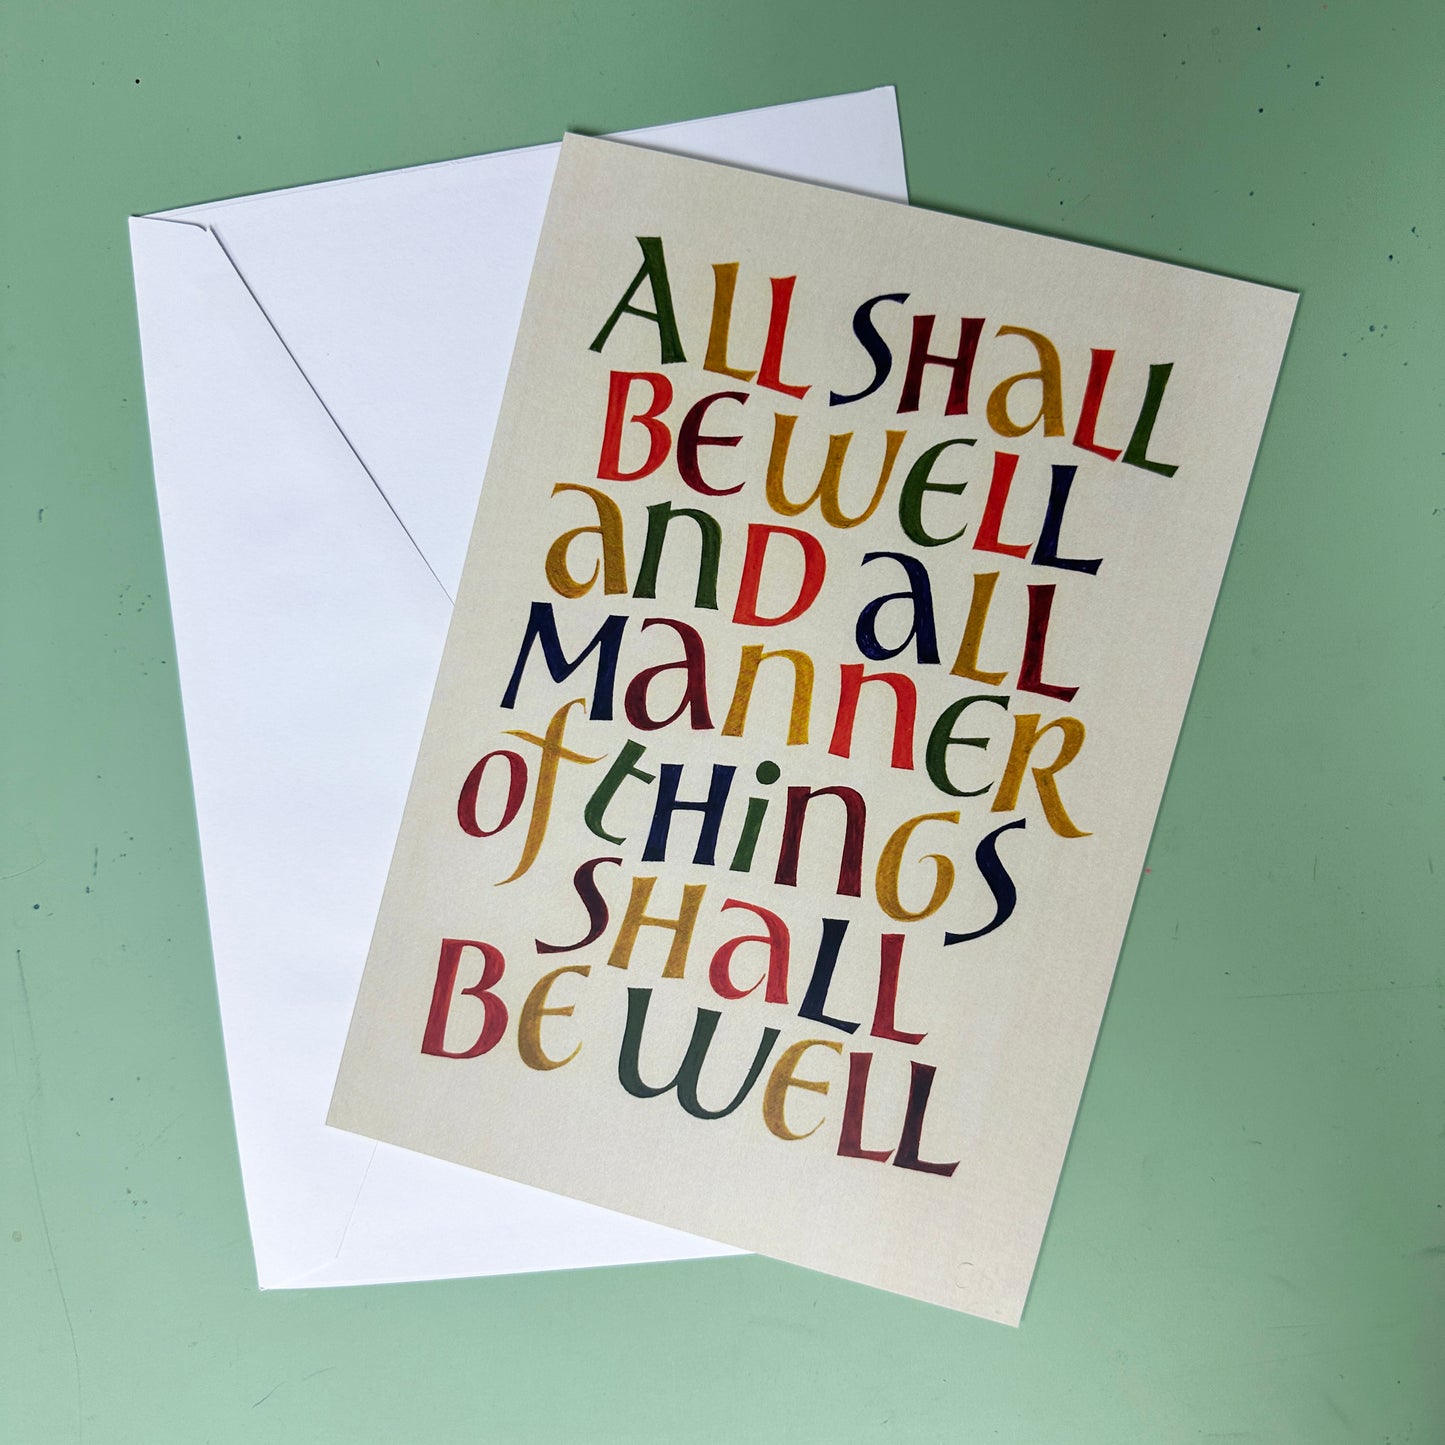 ALL SHALL
BE WELL
AND ALL
MANNER
Of tHiNGS
SHALL
BE WELL